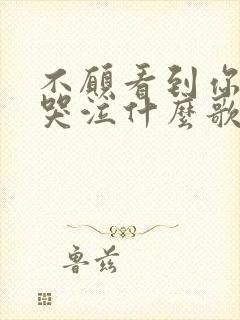 不願看到你
哭泣什麼歌
魯茲